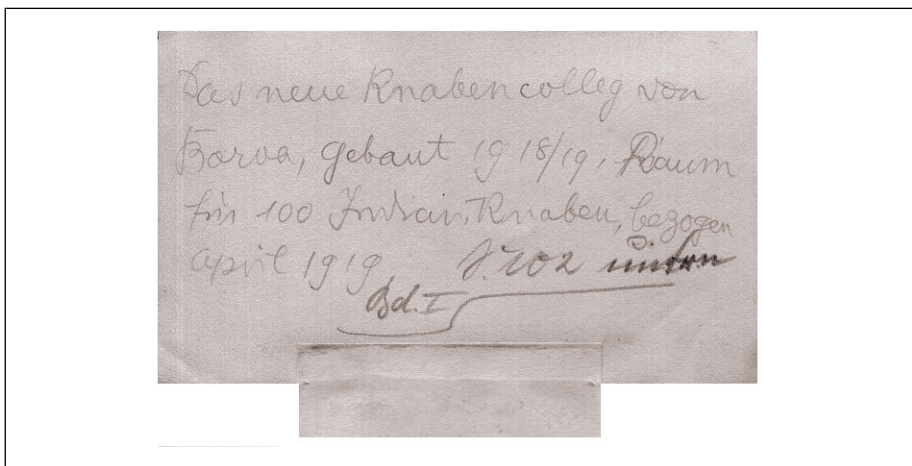 Das neue Knabencolleg von
Boroa, gebaut 1918/19, Raum
für 100 Indian. Knaben, bezogen
April 1919 S. 202 unten
Bd. I